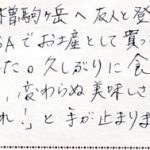 曽駒ヶ岳へ友人と登
SAでお土産として買っ
た。久しぶりに食
、変わらぬ美味しさ
れ!」と手が止まりま